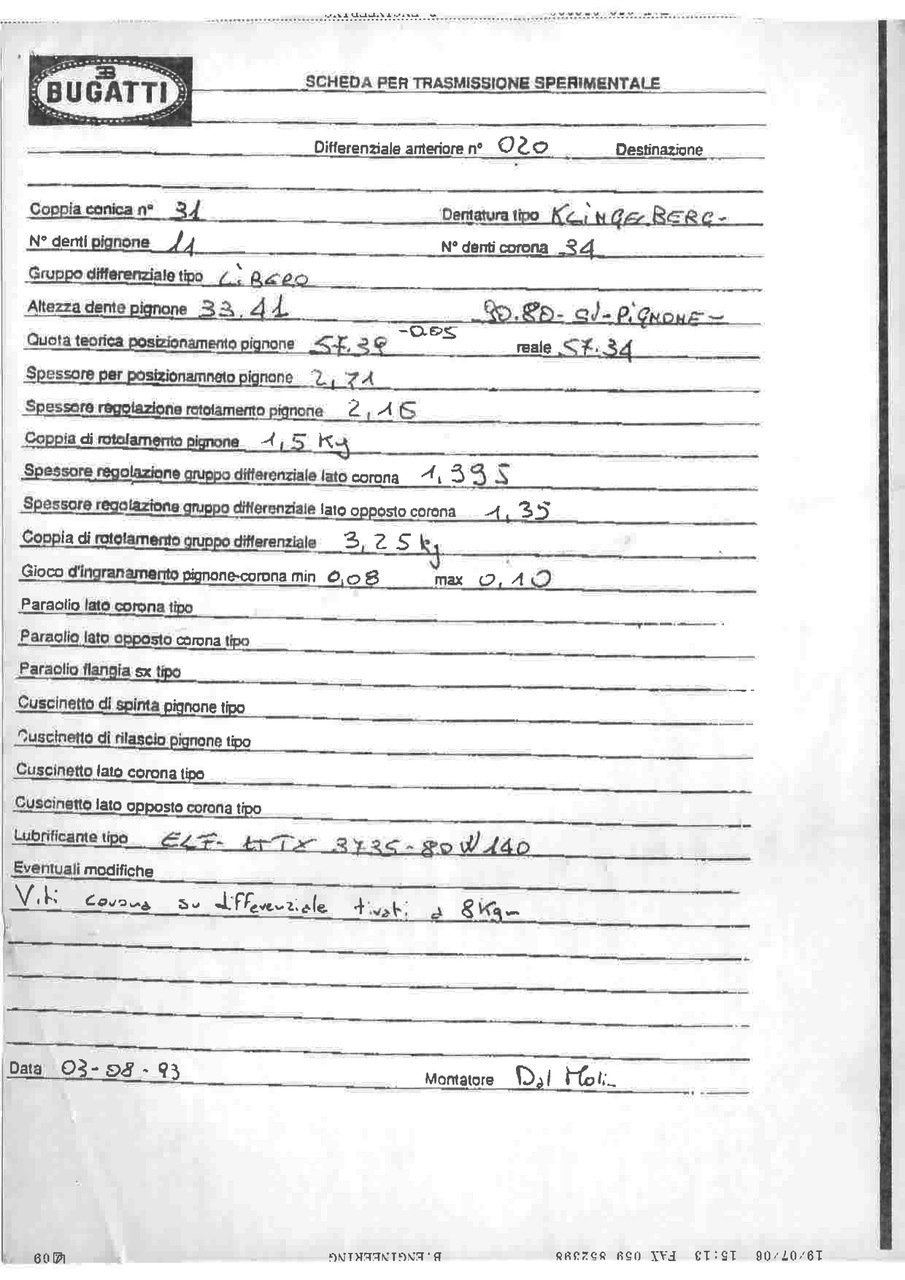 BUGATTI
SCHEDA PER TRASMISSIONE SPERIMENTALE
Differenziale anteriore n° 020 Destinazione
Coppia conica n° 31 Dentatura tipo KLINGELBERG-
N° denti pignone 11 N° denti corona 34
Gruppo differenziale tipo LIBERO
Altezza dente pignone 33.41 90.80- SU-PIGNONE-
Quota teorica posizionamento pignone 57.39 -0.05 reale 57.34
Spessore per posizionamneto pignone 2,71
Spessore regolazione rotolamento pignone 2,16
Coppia di rotolamento pignone 1,5 Kg
Spessore regolazione gruppo differenziale lato corona 1,395
Spessore regolazione gruppo differenziale lato opposto corona 1,35
Coppia di rotolamento gruppo differenziale 3,25 kg
Gioco d'ingranamento pignone-corona min 0,08 max 0,10
Paraolio lato corona tipo
Paraolio lato opposto corona tipo
Paraolio flangia sx tipo
Cuscinetto di spinta pignone tipo
Cuscinetto di rilascio pignone tipo
Cuscinetto lato corona tipo
Cuscinetto lato opposto corona tipo
Lubrificante tipo ELF- HTX 3735-80W140
Eventuali modifiche
Viti corona su differenziale tirati a 8Kgm
Data 03-08-93 Montatore Dal Molin
19/07/06 15:13 FAX 059 852398 B.ENGINEERING 09